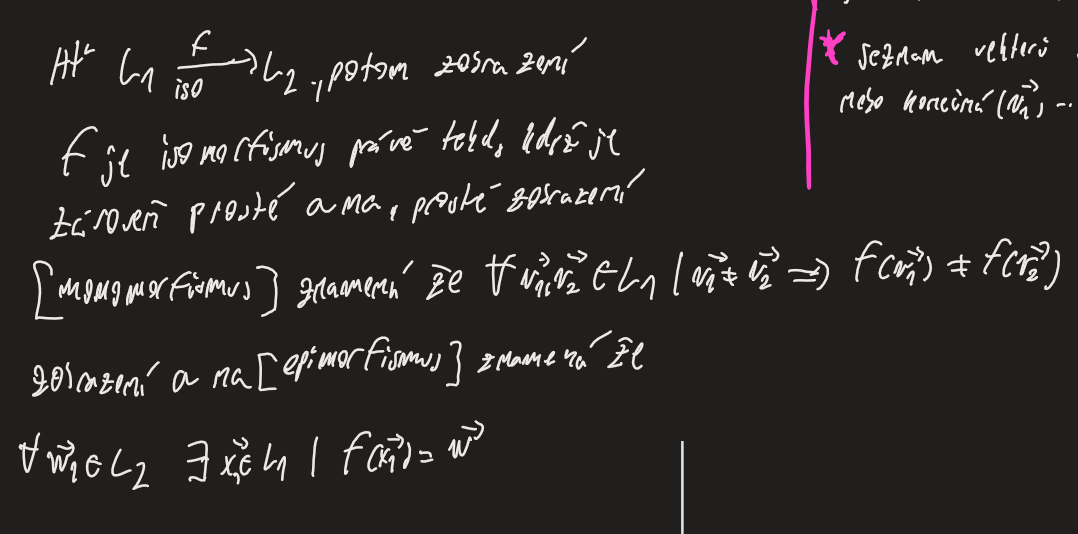 Ať L₁ →(f, iso) L₂, potom zobrazení
f je isomorfismus právě tehdy když je
zároveň prosté a na, prosté zobrazení
[monomorfismus] znamená že ∀ v⃗₁, v⃗₂ ∈ L₁ | v⃗₁ ≠ v⃗₂ ⇒ f(v⃗₁) ≠ f(v⃗₂)
zobrazení a na [epimorfismus] znamená že
∀ w⃗₁ ∈ L₂ ∃ x⃗₁ ∈ L₁ | f(x⃗₁) = w⃗
* Seznam vektorů
nebo konečná (v⃗₁) ...